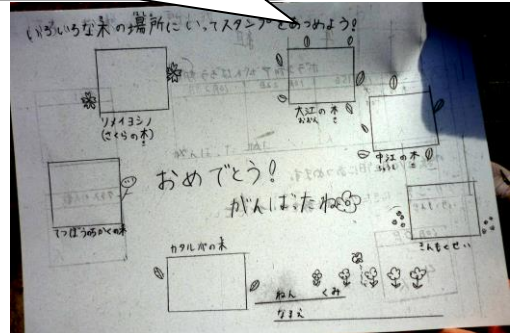 いろいろな木の場所にいってスタンプをあつめよう!
ソメイヨシノ
(さくらの木)
大江の木
中江の木
おめでとう!
がんばったね
てつぼうのちかくの木
きんもくせい
カタルパの木
ねん くみ
なまえ